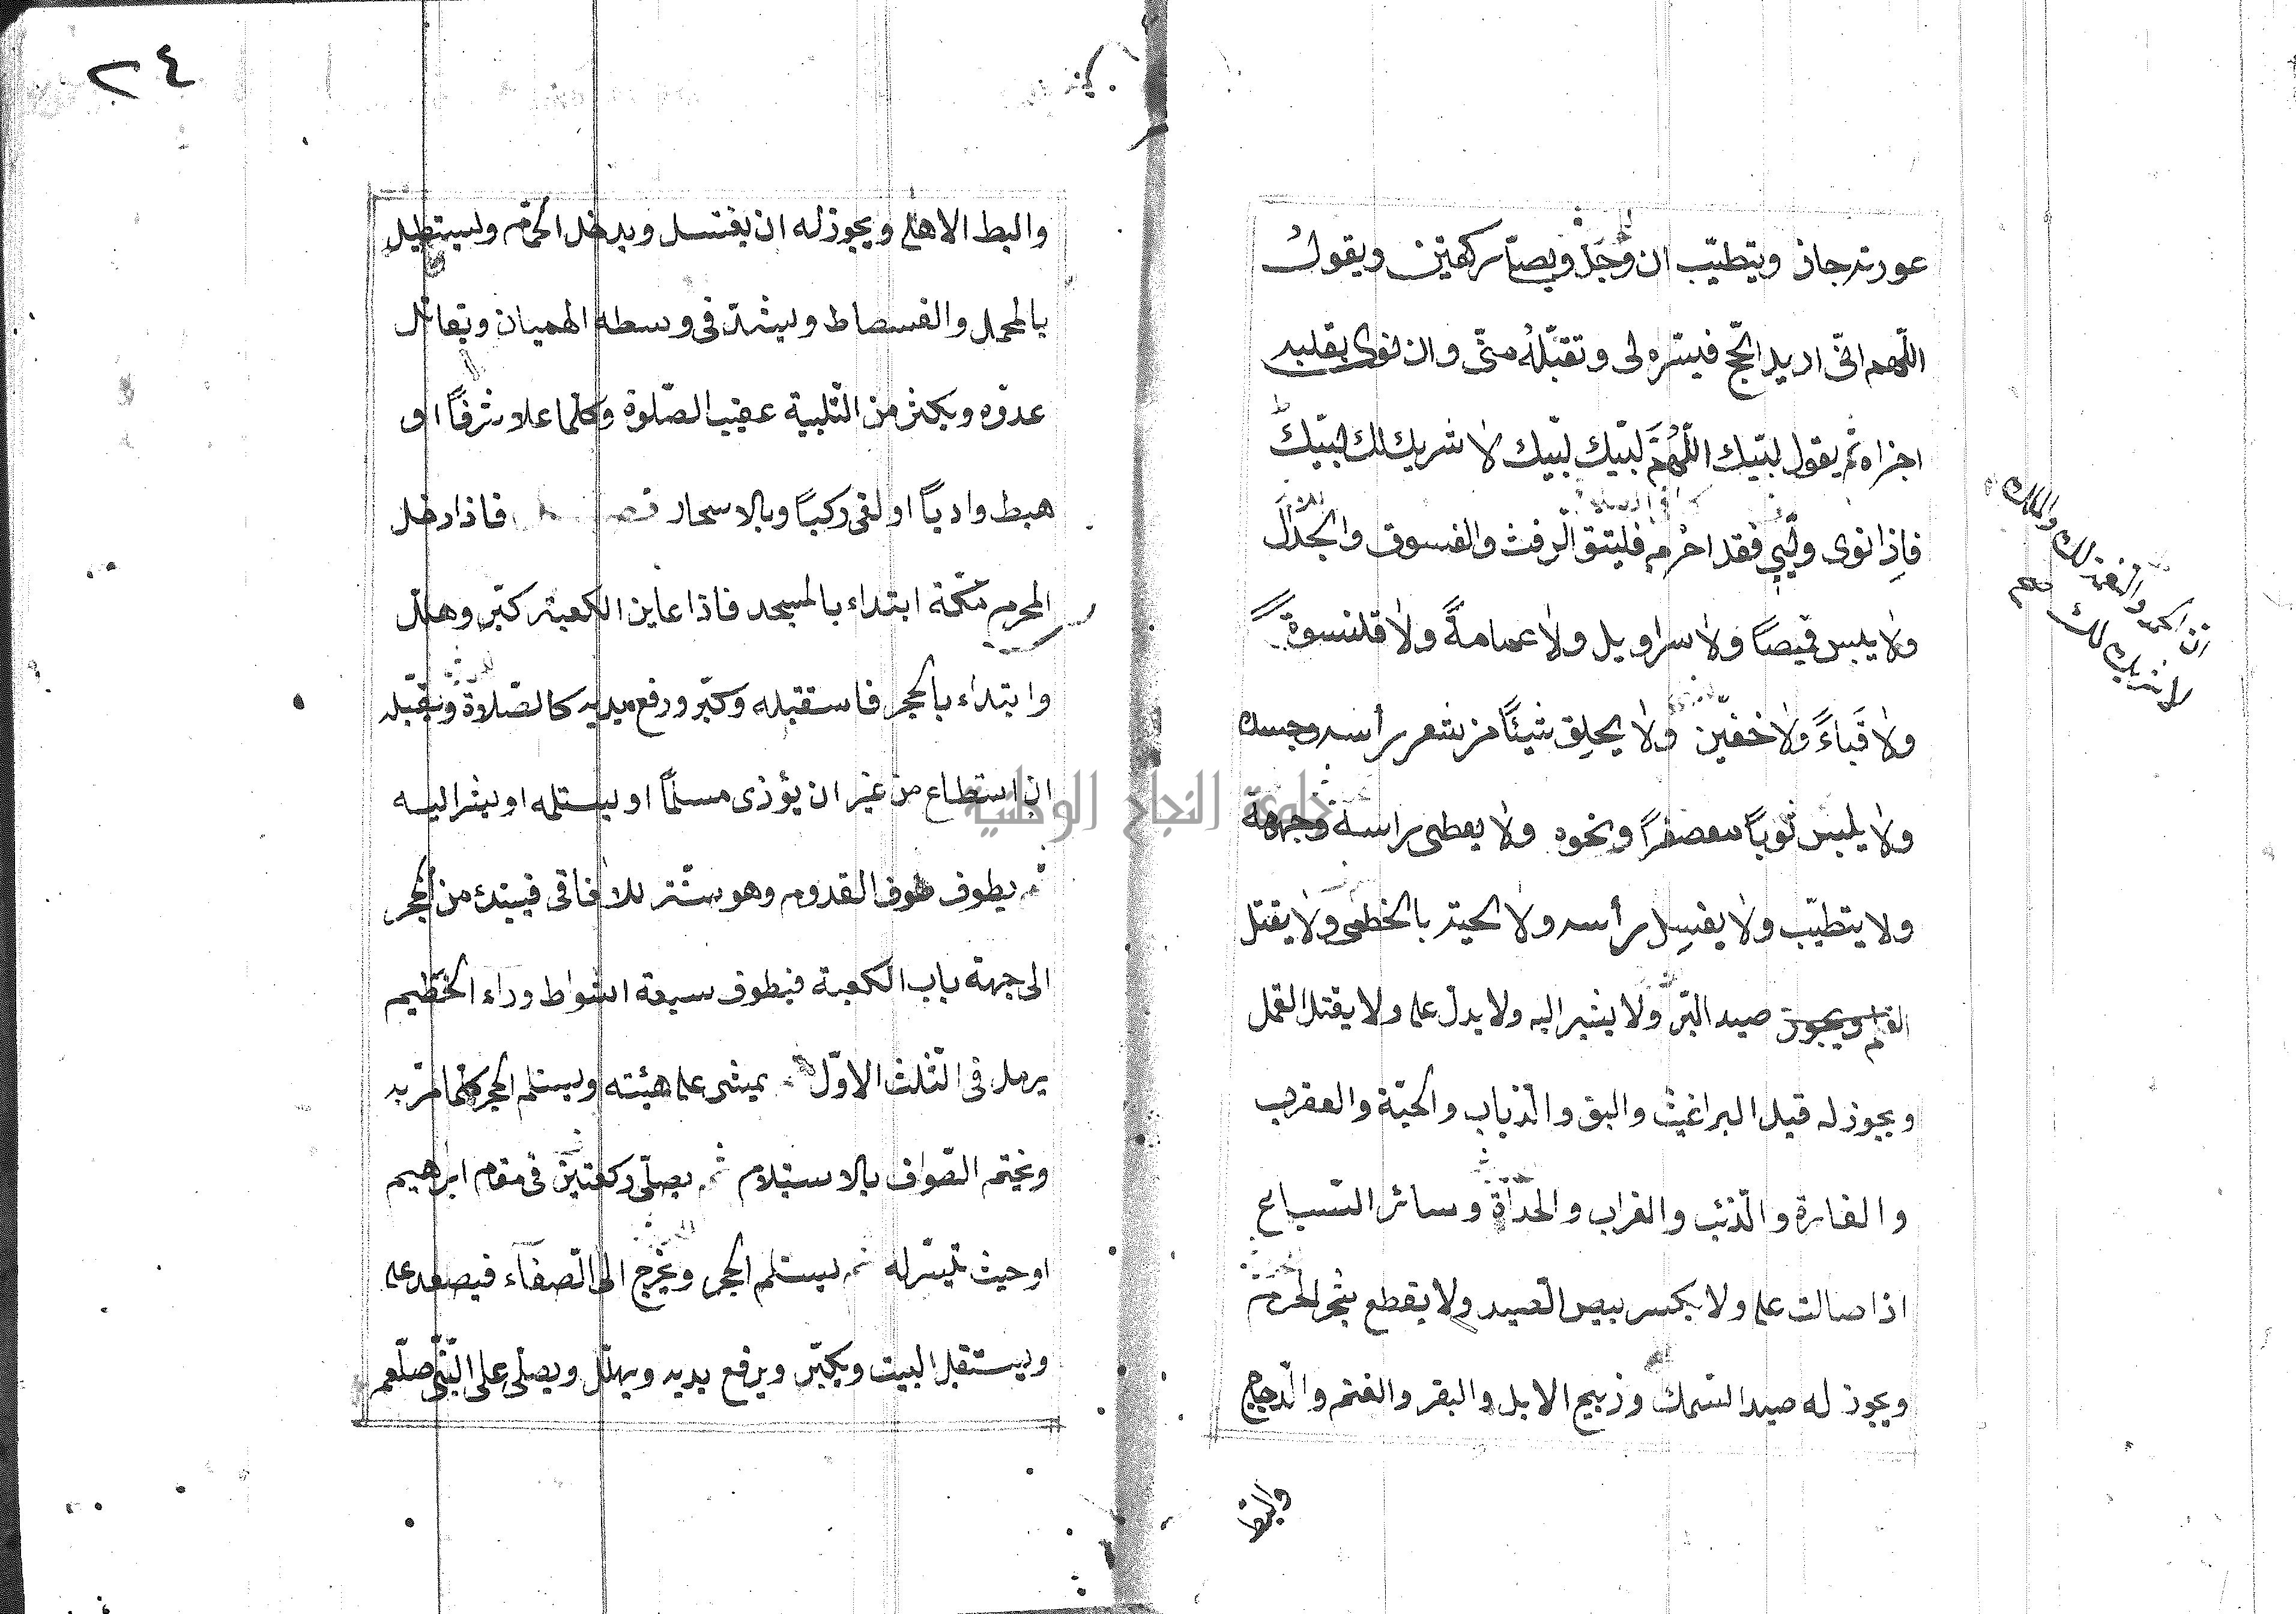 عورته جاز ويتطيّب ان وُجَدَ ويصلّي ركعتين ويقولُ
اللّهم انّى اريد الحجّ فيسّره لى وتقبّلهُ منّى وان نوى بقلبه
اجزاه ثم يقول لبّيك اللّهُمَّ لبّيك لبّيك لا شريك لك لبّيك
انّ الحمد والنعمة لك والملك
لا شريك لك صح
فاِذا نوى ولبّى فقد احْرم فليتق الّرفث والفسوق والجدَالَ
ولا يلبس قميصًا ولا سراويل ولا عمامةً ولا قلنسوةً
ولا قَباءً ولا خفيّن ولا يحلِق شيئًا من شعر رأسه وجسده
ولا يلبس ثوبًا معصفرًا ونحوه ولا يغطى راسه وجهه
ولا يتطيّب ولا يغسِل رأسه ولا لحيته بالخطمى ولا يقتل
صيد البّر ولا يشير اليه ولا يدلّ على ولا يقتل القمل
ويجوز له قتل البراغيث والبق والّذباب والحيّة والعقرب
والفارة والّذئب والغراب والحدأة وسائر السّباع
اذا صالت على ولا يكسر بيض الّصيد ولا يقطع شجر الحرم
ويجوز له صيد السّمك وذبيح الابل والبقر والغنم والّدجاج
والبط
٢٤
والبط الاهلى ويجوز له ان يغتسل ويدخل الحمّام ويستظِل
بالمحمل والفسطاط ويشدّ فى وسطه الهميان ويقاتل
عدوّه ويكثر من التّلبية عقيب الصّلوة وكلّما علا شرفًا او
هبط واديًا او لقى ركبًا وبالاسحار فاذا دخل
المحرم مكّة ابتداء بالمسجد فاذا عاين الكعبة كبّر وهلّل
وابتداء بالحجر فاستقبله وكبّر ورفع يديه كالصّلاة ويقبّله
ان استطاع من غير ان يؤذى مسلمًا او يستلمه او يشر اليه
ثم يطوف طوف القدوم وهو سنّة للافاقى فيبتدئ من الحجر
الى جهة باب الكعبة فيطوف سبعة اشواط وراء الحَطيم
يرمل فى الثّلث الاوّل يمشى على هيئته ويستلم الحجر كلّما مرّ به
ويختم الطّواف بالاستلام ثم يصلّى ركعتين فى مقام ابراهيم
او حيث تيسّر له ثم يستلم الحجر ويخرج الى الصفآء فيصعد على
ويستقبل البيت ويكبّر ويرفع يديه ويهلّل ويصلّى على النّبىّ صلّعم
جامعة النجاح الوطنية